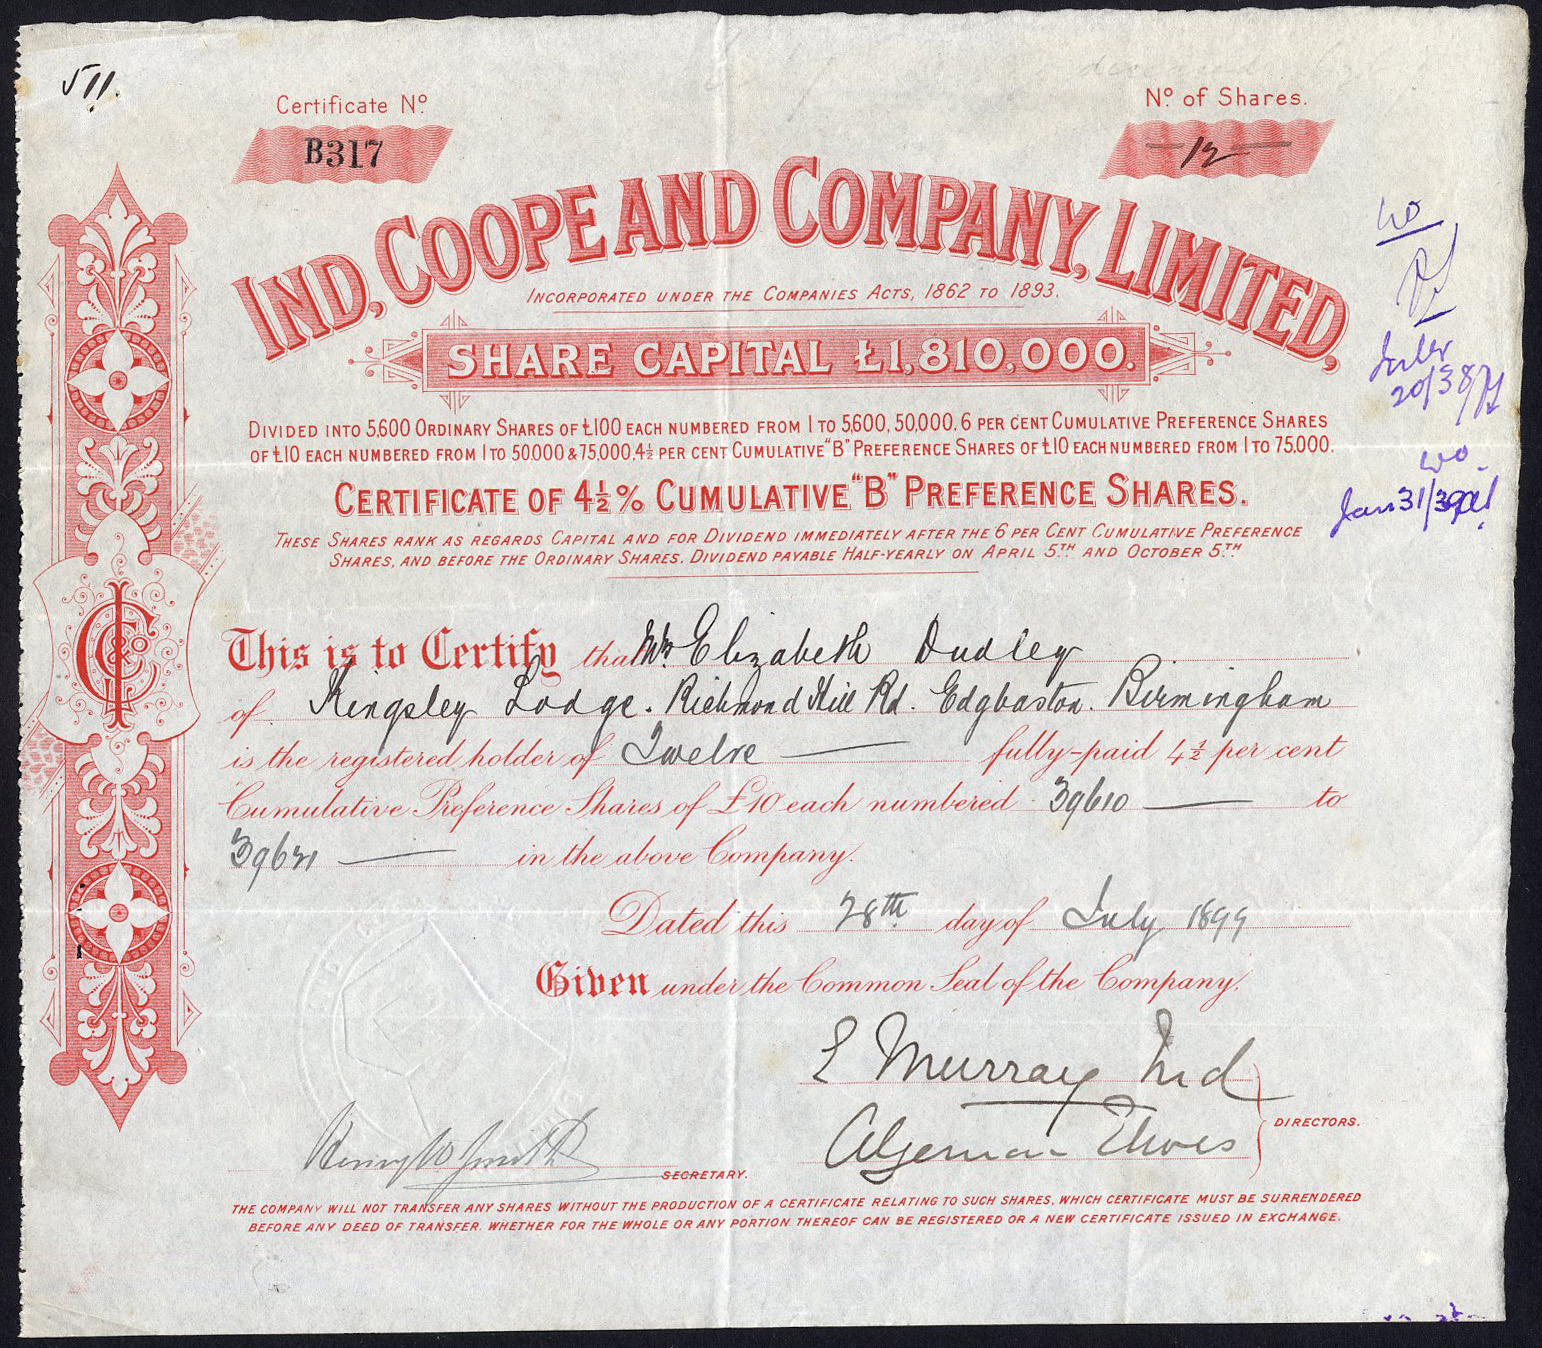 511.
Certificate Nº
B317
Nº of Shares.
12
IND, COOPE AND COMPANY, LIMITED,
INCORPORATED UNDER THE COMPANIES ACTS, 1862 TO 1893.
SHARE CAPITAL £1,810,000.
DIVIDED INTO 5,600 ORDINARY SHARES OF £100 EACH NUMBERED FROM 1 TO 5,600, 50,000. 6 PER CENT CUMULATIVE PREFERENCE SHARES
OF £10 EACH NUMBERED FROM 1 TO 50000 & 75,000, 4½ PER CENT CUMULATIVE "B" PREFERENCE SHARES OF £10 EACH NUMBERED FROM 1 TO 75,000.
CERTIFICATE OF 4½% CUMULATIVE "B" PREFERENCE SHARES.
THESE SHARES RANK AS REGARDS CAPITAL AND FOR DIVIDEND IMMEDIATELY AFTER THE 6 PER CENT CUMULATIVE PREFERENCE
SHARES, AND BEFORE THE ORDINARY SHARES. DIVIDEND PAYABLE HALF-YEARLY ON APRIL 5TH AND OCTOBER 5TH
This is to Certify that Mrs Elizabeth Dudley
of Kingsley Lodge. Richmond Hill Rd. Edgbaston. Birmingham
is the registered holder of Twelve fully-paid 4½ per cent
Cumulative Preference Shares of £10 each numbered 39610 to
39621 in the above Company.
Dated this 28th day of July 1899
Given under the Common Seal of the Company.
E Murray Ind
Algernon Elwes
DIRECTORS.
Henry W Smith
SECRETARY.
THE COMPANY WILL NOT TRANSFER ANY SHARES WITHOUT THE PRODUCTION OF A CERTIFICATE RELATING TO SUCH SHARES, WHICH CERTIFICATE MUST BE SURRENDERED
BEFORE ANY DEED OF TRANSFER. WHETHER FOR THE WHOLE OR ANY PORTION THEREOF CAN BE REGISTERED OR A NEW CERTIFICATE ISSUED IN EXCHANGE.
wo
20/38
wo.
Jan 31/39